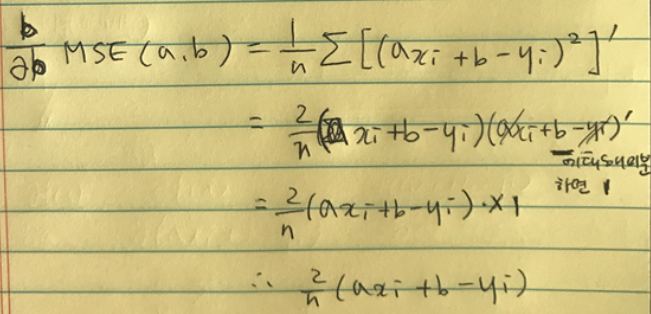 ∂/∂b MSE(a,b) = 1/n Σ[(axi + b - yi)²]'
= 2/n (a xi + b - yi)(axi + b - yi)'
하면 1
= 2/n (axi + b - yi) · × 1
∴ 2/n (axi + b - yi)